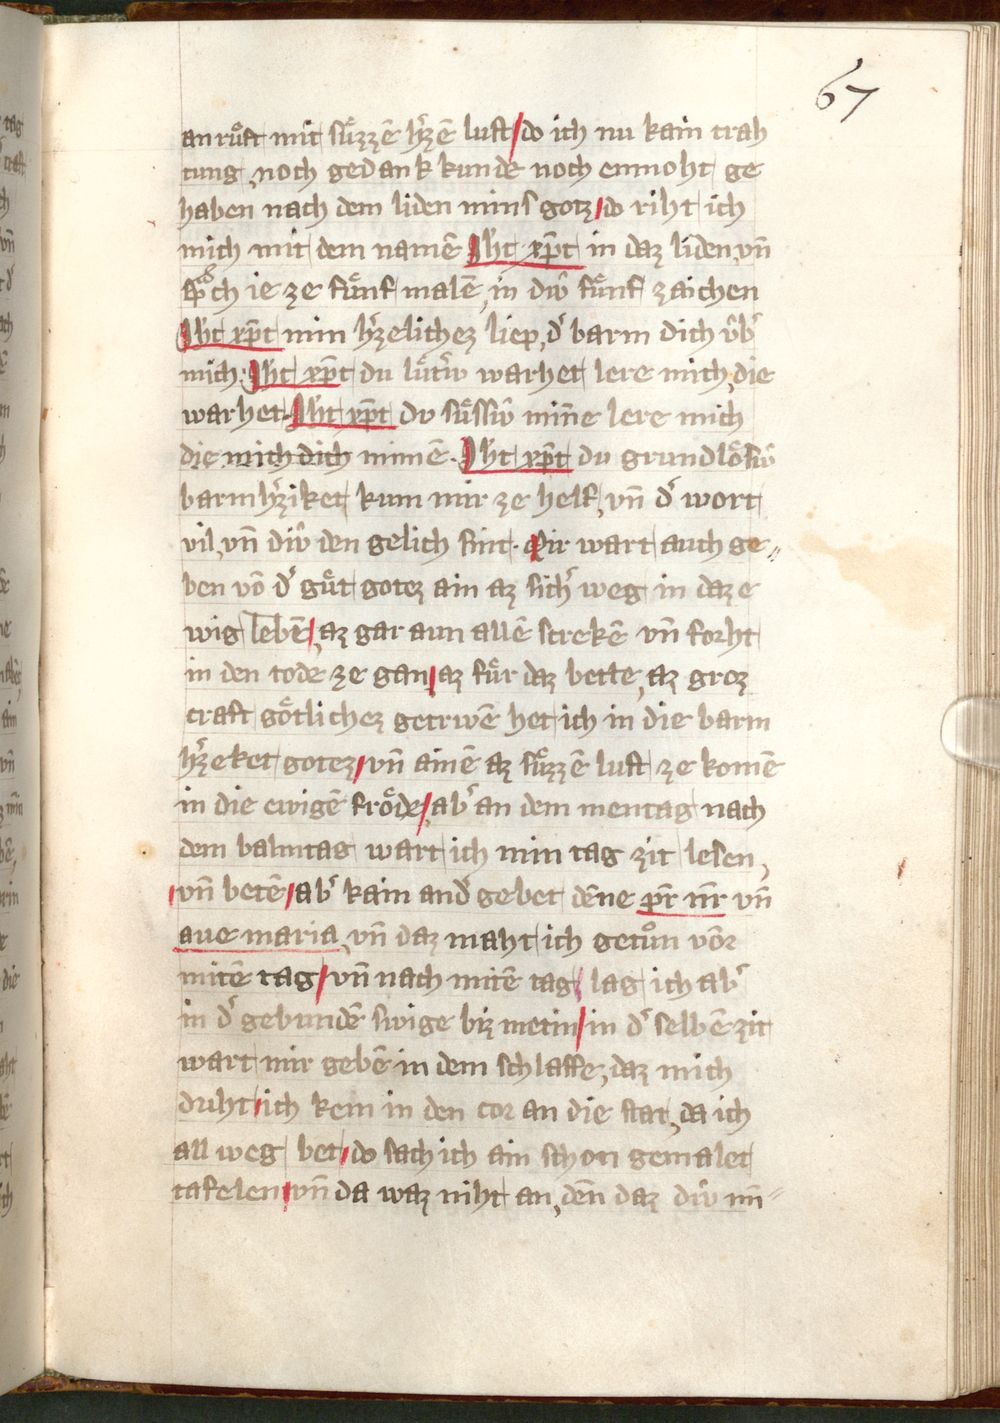 67
an ruͦft mit suͤzzē h'zzē lust / do ich nu kain trah
tung, noch gedank kunde noch enmoht ge
haben nach dem liden mins gotz / do riht ich
mich mit dem namē Jh't xp̄t in daz liden, vn̄
sp̄ch ie ze fuͤnf malē, in diw̑ fuͤnf zaichen
Jh't xp̄t min h'zelichez liep, d' barm dich v̂b'
mich. Jh't xp̄t du luͤt'iv warhet lere mich die
warhet. Jh't xp̄t du suͤssiv̂ min̄e lere mich
die mich dich minnē. Jh't xp̄t du grundloͤsiv̂
barmh'ziket kum mir ze helf, vn̄ d' wort
vil, vn̄ diw̑ den gelich sint. Mir wart auch ge〃
ben vō d' guͤt gotez ain az sich' weg in daz e
wig lebē, az gar aun allē screkē vn̄ forht
in den tode ze gan / az fuͤr daz bette, az groz
craft goͤtlichez getrwē het ich in die barm
h'zeket gotez / vn̄ ainē az suͤzzē lust ze komē
in die ewigē froͤde / ab' an dem mentag nach
dem balmtag wart ich min tag zit lesen,
vn̄ betē / ab' kain and' gebet den̄e pr̄ nr̄ vn̄
aue maria, vn̄ daz maht ich getuͦn vōr
mitē tag / vn̄ nach mitē tag / lag ich ab'
in d' gebundē swige biz metin / in d' selbē zit
wart mir gebē in dem schlaffe, daz mich
duht / ich kem in den cor an die stat, da ich
all weg bet / do sach ich ain schon gemalet
tafelen / vn̄ da waz niht an, den̄ daz diw̑ mī〃